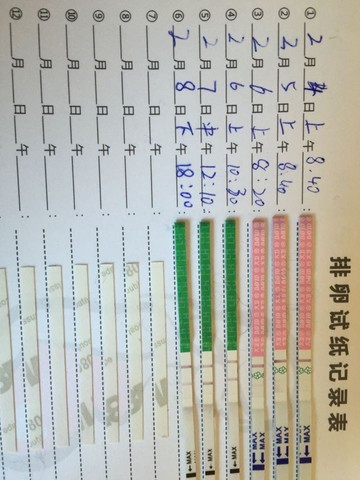 排卵试纸记录表
① 2月4日上午8:40:
② 2月5日上午8:40:
③ 2月6日上午8:20:
④ 2月6日上午10:30:
⑤ 2月7日中午12:10:
⑥ 2月8日下午18:00:
⑦ __月__日__午__:
⑧ __月__日__午__:
⑨ __月__日__午__:
⑩ __月__日__午__:
⑪ __月__日__午__:
⑫ __月__日__午__:
MAX
MAX
MAX
MAX
MAX
MAX